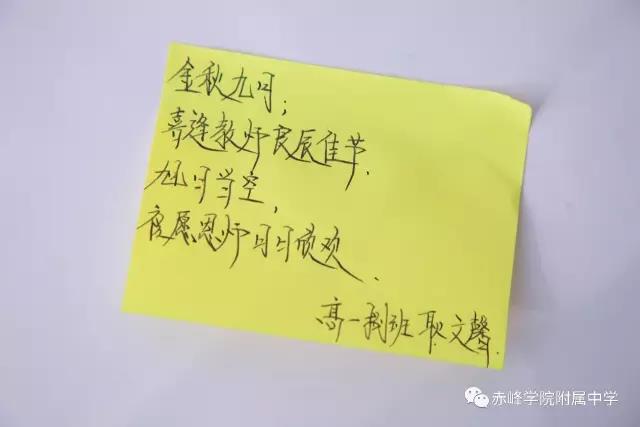 金秋九月；
喜逢教师良辰佳节.
旭日当空，
愿恩师日日欢.
高一班 耿文馨.
赤峰学院附属中学